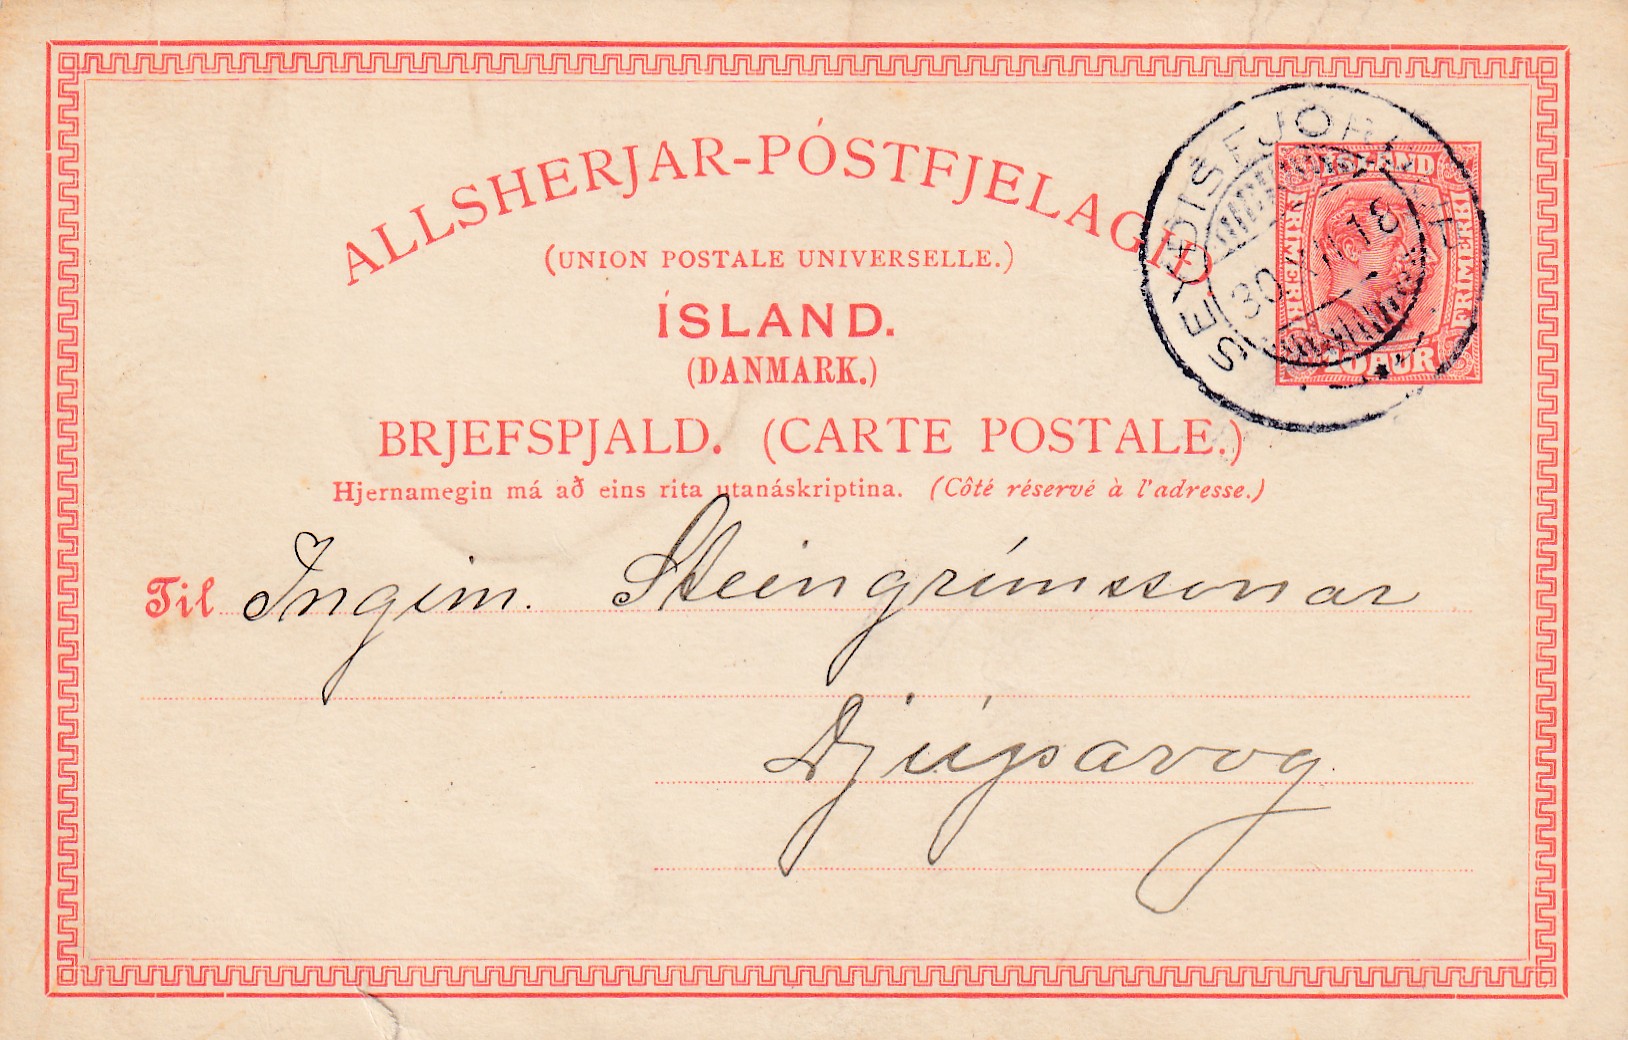 ALLSHERJAR-PÓSTFJELAGIÐ.
(UNION POSTALE UNIVERSELLE.)
ÍSLAND.
(DANMARK.)
BRJEFSPJALD. (CARTE POSTALE.)
Hjernamegin má að eins rita utanáskriptina. (Côté réservé à l'adresse.)
SEYÐISFJÖRÐUR
30.XII.18
ÍSLAND
FRÍMERKI
FRÍMERKI
10 AUR
Til Ingim. Steingrímssonar
Djúpavog